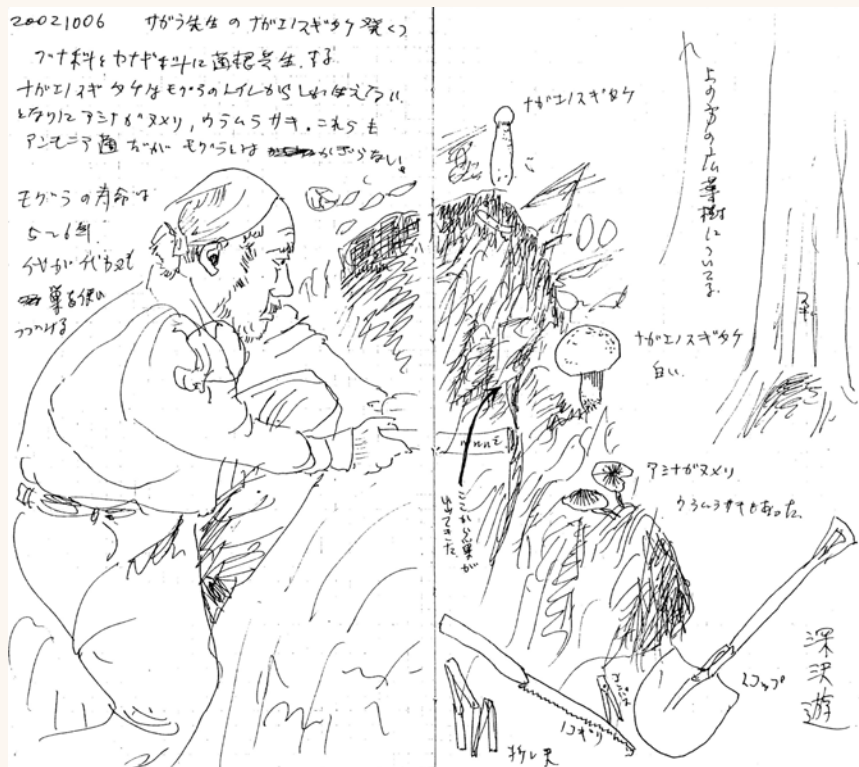 20021006 サガラ先生のナガエノスギタケ発くつ
ブナ科とカバノキ科に菌根共生する
ナガエノスギタケはモグラのトイレからしか生えない。
となりにアシナガヌメリ、ウラムラサキ。これらも
アンモニア菌だがモグラとはかぎらない。
モグラの寿命は
5〜6年。
代が代わっても
巣を使い
つづける
ナガエノスギタケ
上の方の広葉樹についてる
スギ
ナガエノスギタケ
白い
ここから巣が
出てきた
アシナガヌメリ
ウラムラサキもあった。
スコップ
ノコギリ
折レ尺
深沢遊